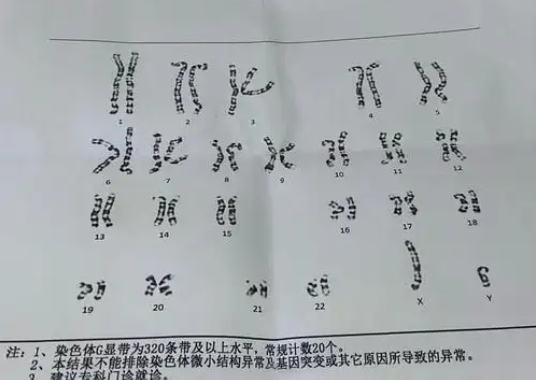 1 2 3 4 5
6 7 8 9 10 11 12
13 14 15 16 17 18
19 20 21 22 X Y
注：1、染色体G显带为320条带及以上水平，常规计数20个。
2、本结果不能排除染色体微小结构异常及基因突变或其它原因所导致的异常。
3、建议专科门诊就诊。